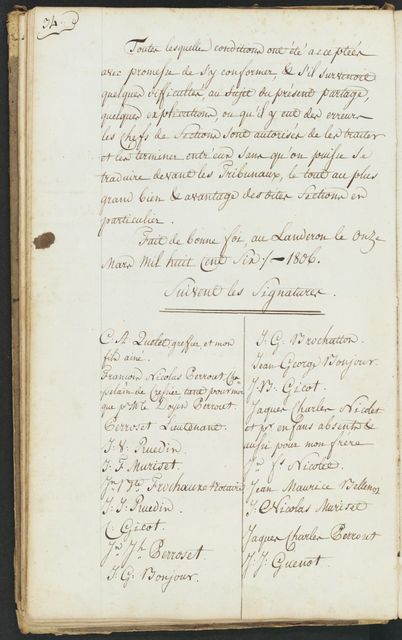 34.
Toutes lesquelles conditions ont été acceptées
avec promesse de s'y conformer, & s'il survenoit
quelques difficultés, au sujet du présent partage,
quelques explications, ou qu'il y eut des erreurs
les chefs de Sections sont autorisés de les traiter
et les terminer entr'eux sans qu'on puisse se
traduire devant les Tribunaux, le tout au plus
grand bien & avantage des dites Sections en
particulier.
Fait de bonne foi, au Landeron le Onze
Mars Mil huit Cent Six /: 1806.
Suivent les Signatures.
C. A. Quelet greffier et mon
fils ainé.
François Nicolas Perrout
Cressier tant pour moi
que pr Mr le Doyen Perrout.
Perroset Lieutenant.
J. N. Ruedin.
J. F. Muriset.
Frochaux Notaire
J. J. Ruedin.
C. Gicot.
Jn Jh Perroset.
J. G. Bonjour.
J. G. Brochatton.
Jean George Bonjour.
J. B. Gicot.
Jaques Charles Nicolet
et pr enfans absents &
aussi pour mon frère
Jn Fs Nicolet.
Jean Maurice Bellenot
J. Nicolas Muriset
Jaques Charles Perrout
J. J. Guenot.